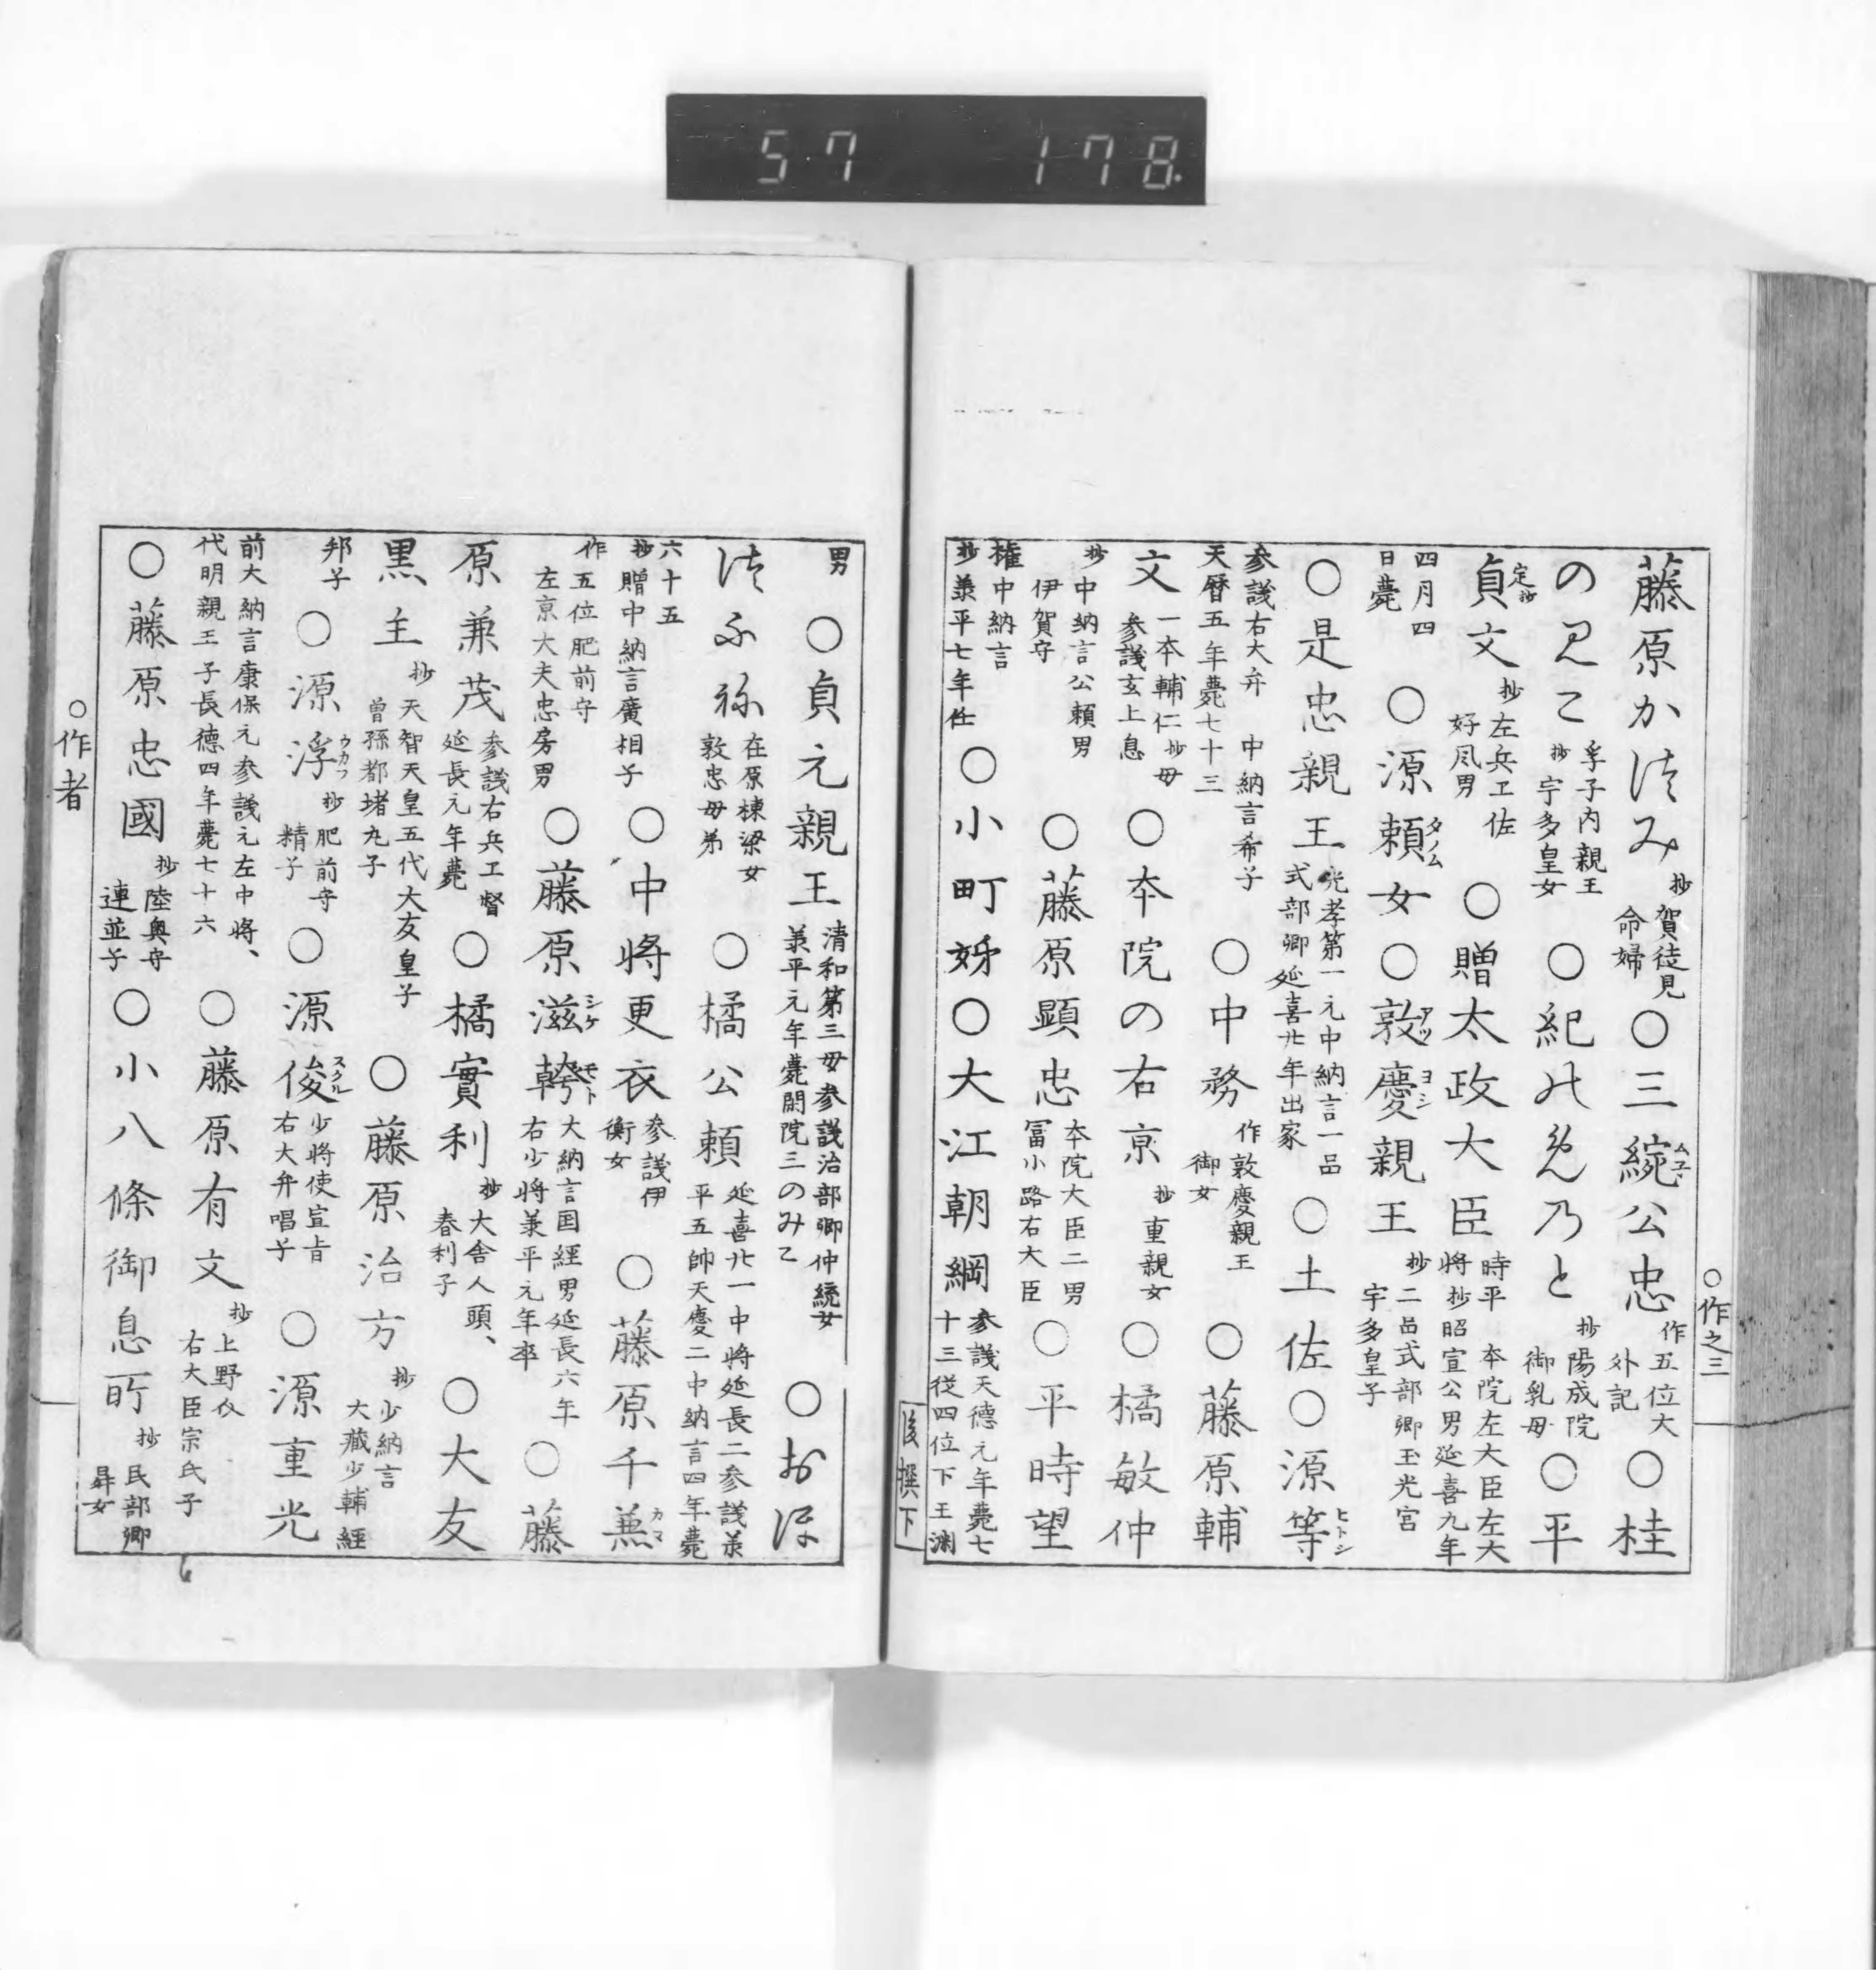 57 178
○作之三
藤原かつみ 抄賀徒見命婦 ○三綂公忠 ムネ 作五位大外記 ○桂
のみこ 孚子内親王抄宇多皇女 ○紀のめのと 抄陽成院御乳母 ○平
貞文 定抄 抄左兵工佐好凬男 ○贈太政大臣 時平 本院左大臣左大将抄昭宣公男延喜九年
四月四日薨 ○源頼女 タノム ○敦慶親王 アツヨシ 抄二品式部卿玉光宮宇多皇子
○是忠親王 光孝第一元中納言一品式部卿延喜廿年出家 ○土佐 ○源等 ヒトシ
参議右大弁 中納言希子天暦五年薨七十三 ○中務 作敦慶親王御女 ○藤原輔
文 一本輔仁抄母参議玄上息 ○本院の右京 抄重親女 ○橘敏仲
抄中納言公頼男伊賀守 ○藤原顕忠 本院大臣二男冨小路右大臣 ○平時望
権中納言抄兼平七年任 ○小町姊 ○大江朝綱 参議天徳元年薨七十三従四位下王渕
後撰下
男 ○貞元親王 清和第三母参議治部卿仲統女兼平元年薨閑院三のみこ ○おほ
つふね 在原棟梁女敦忠母弟 ○橘公頼 延喜廿一中将延長二参議兼平五帥天慶二中納言四年薨
六十五抄贈中納言廣相子 ○中将更衣 参議伊衡女 ○藤原千兼 カヌ
作五位肥前守左京大夫忠房男 ○藤原滋幹 シケモト 大納言国經男延長六年右少将兼平元年卒 ○藤
原兼茂 参議右兵工督延長元年薨 ○橘實利 抄大舎人頭、春利子 ○大友
黒主 抄天智天皇五代大友皇子曽孫都堵丸子 ○藤原治方 抄少納言大藏少輔經
邦子 ○源浮 ウカフ 抄肥前守精子 ○源俊 スクル 少将使宣旨右大弁唱子 ○源重光
前大納言康保元参議元左中将、代明親王子長徳四年薨七十六 ○藤原有文 抄上野介右大臣宗氏子
○藤原忠國 抄陸奥守連並子 ○小八條御息所 抄民部卿昇女
○作者